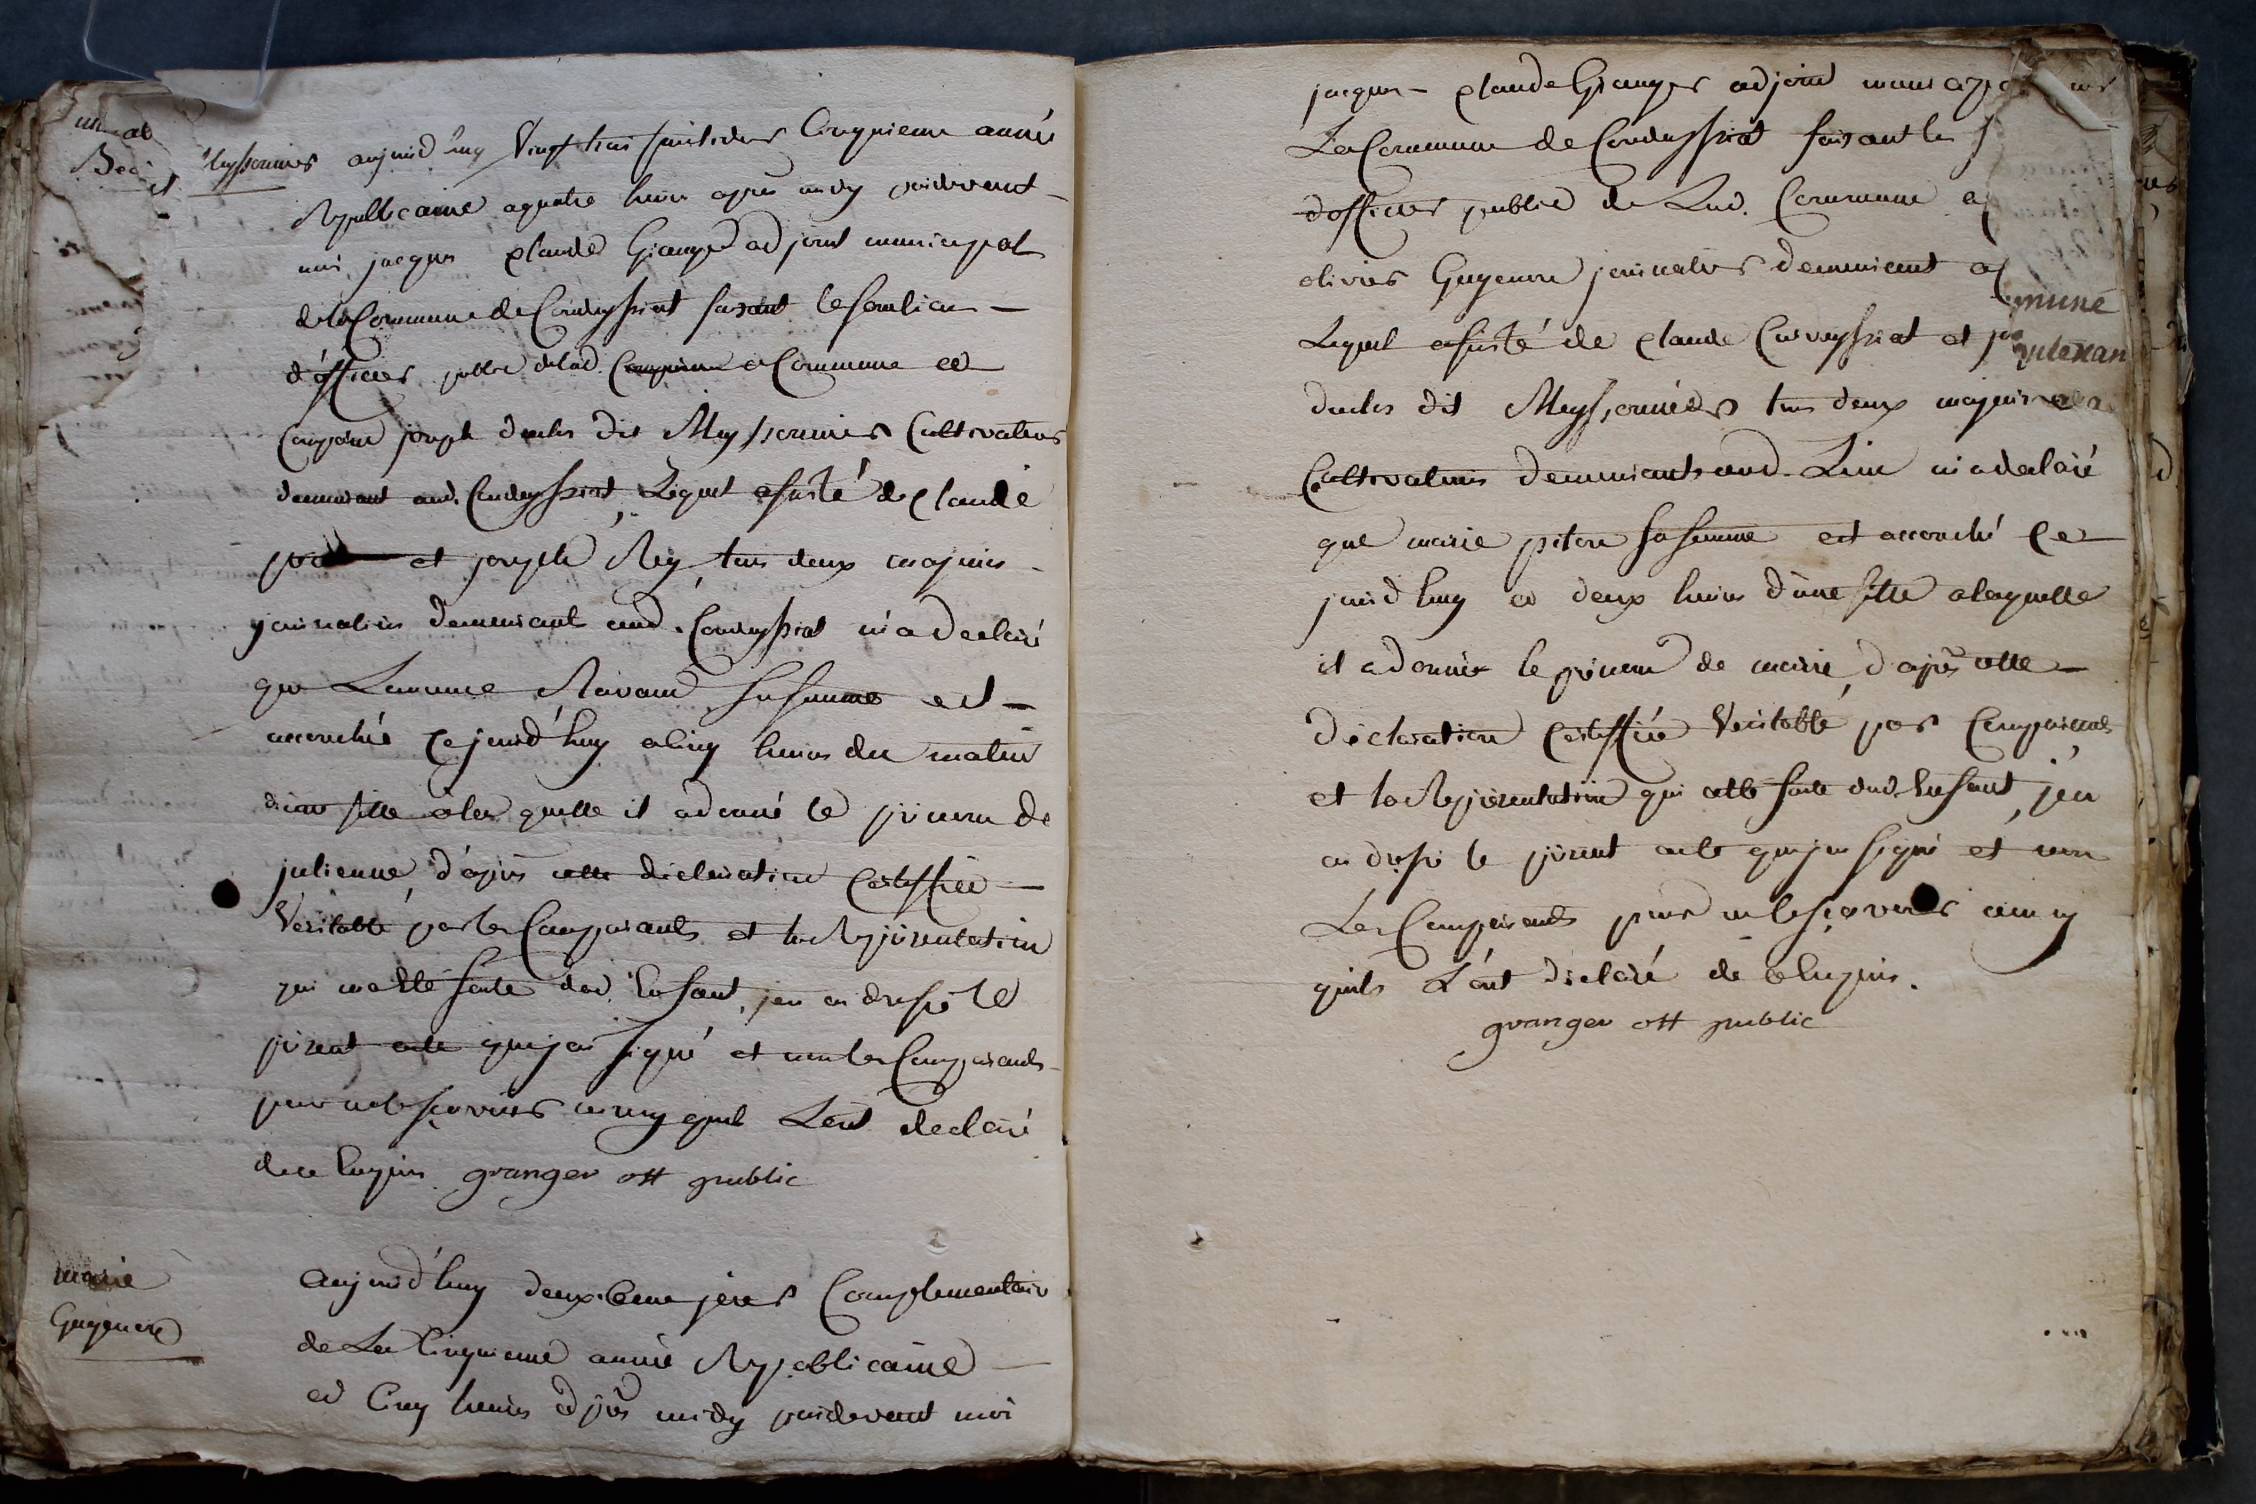 Meyssonnier aujourd'huy Vingt trois fructidor Cinquieme année
Republicaine a quatre heures apres midy pardevant
moi jacques Claude Granger adjoint municipal
de la Commune de Condeyssiat faisant les fontion
d'officier public de lad. Commune a Commune est
Comparu joseph duclos dit Meyssonnier Cultivateur
demeurant aud. Condeyssiat, Lequel assisté de Claude
et joseph Rey tous deux majeurs
journaliers demeurant aud. Condeyssiat m'a declaré
que Laurence Ravaud sa femme est
accouchée cejourd'huy a cinq heures du matin
d'une fille a la quelle il a donné le prenom de
julienne, d'apres cette declaration certiffiée
Veritable par les Comparants et la Representation
qui m'a été faite dud. Enfant, j'en ai dressé le
present acte que j'ai signé et non les Comparants
pour ne le sçavoir ainsy quil L'ont declaré
de ce Enquis. granger off public
marie
Guyenon
aujourd'huy deuxieme jour Complementaire
de La Cinquieme année Republicaine
a Cinq heures apres midy pardevant moi
jacques Claude Granger adjoint
La Commune de Condeyssiat faisant les
d'officier public de Lad. Commune
olivier Guyenon journalier demeurant
mune
Lequel assisté de Claude Corveyssiat et
duclos dit Meyssonnier tous deux majeurs
Cultivateurs demeurants aud. Lieu m'a declaré
que marie piton sa femme est accouché ce
jourd'huy a deux heures d'une fille a laquelle
il a donné le prenom de marie, d'apres cette
déclaration certiffiée Veritable par Comparants
et la Representation qui a été faite dud Enfant, j'en
ai dressé le present acte que j'ai signé et non
Les Comparants pour ne le sçavoir ainsy
quils L'ont déclaré de ce Enquis.
granger off public